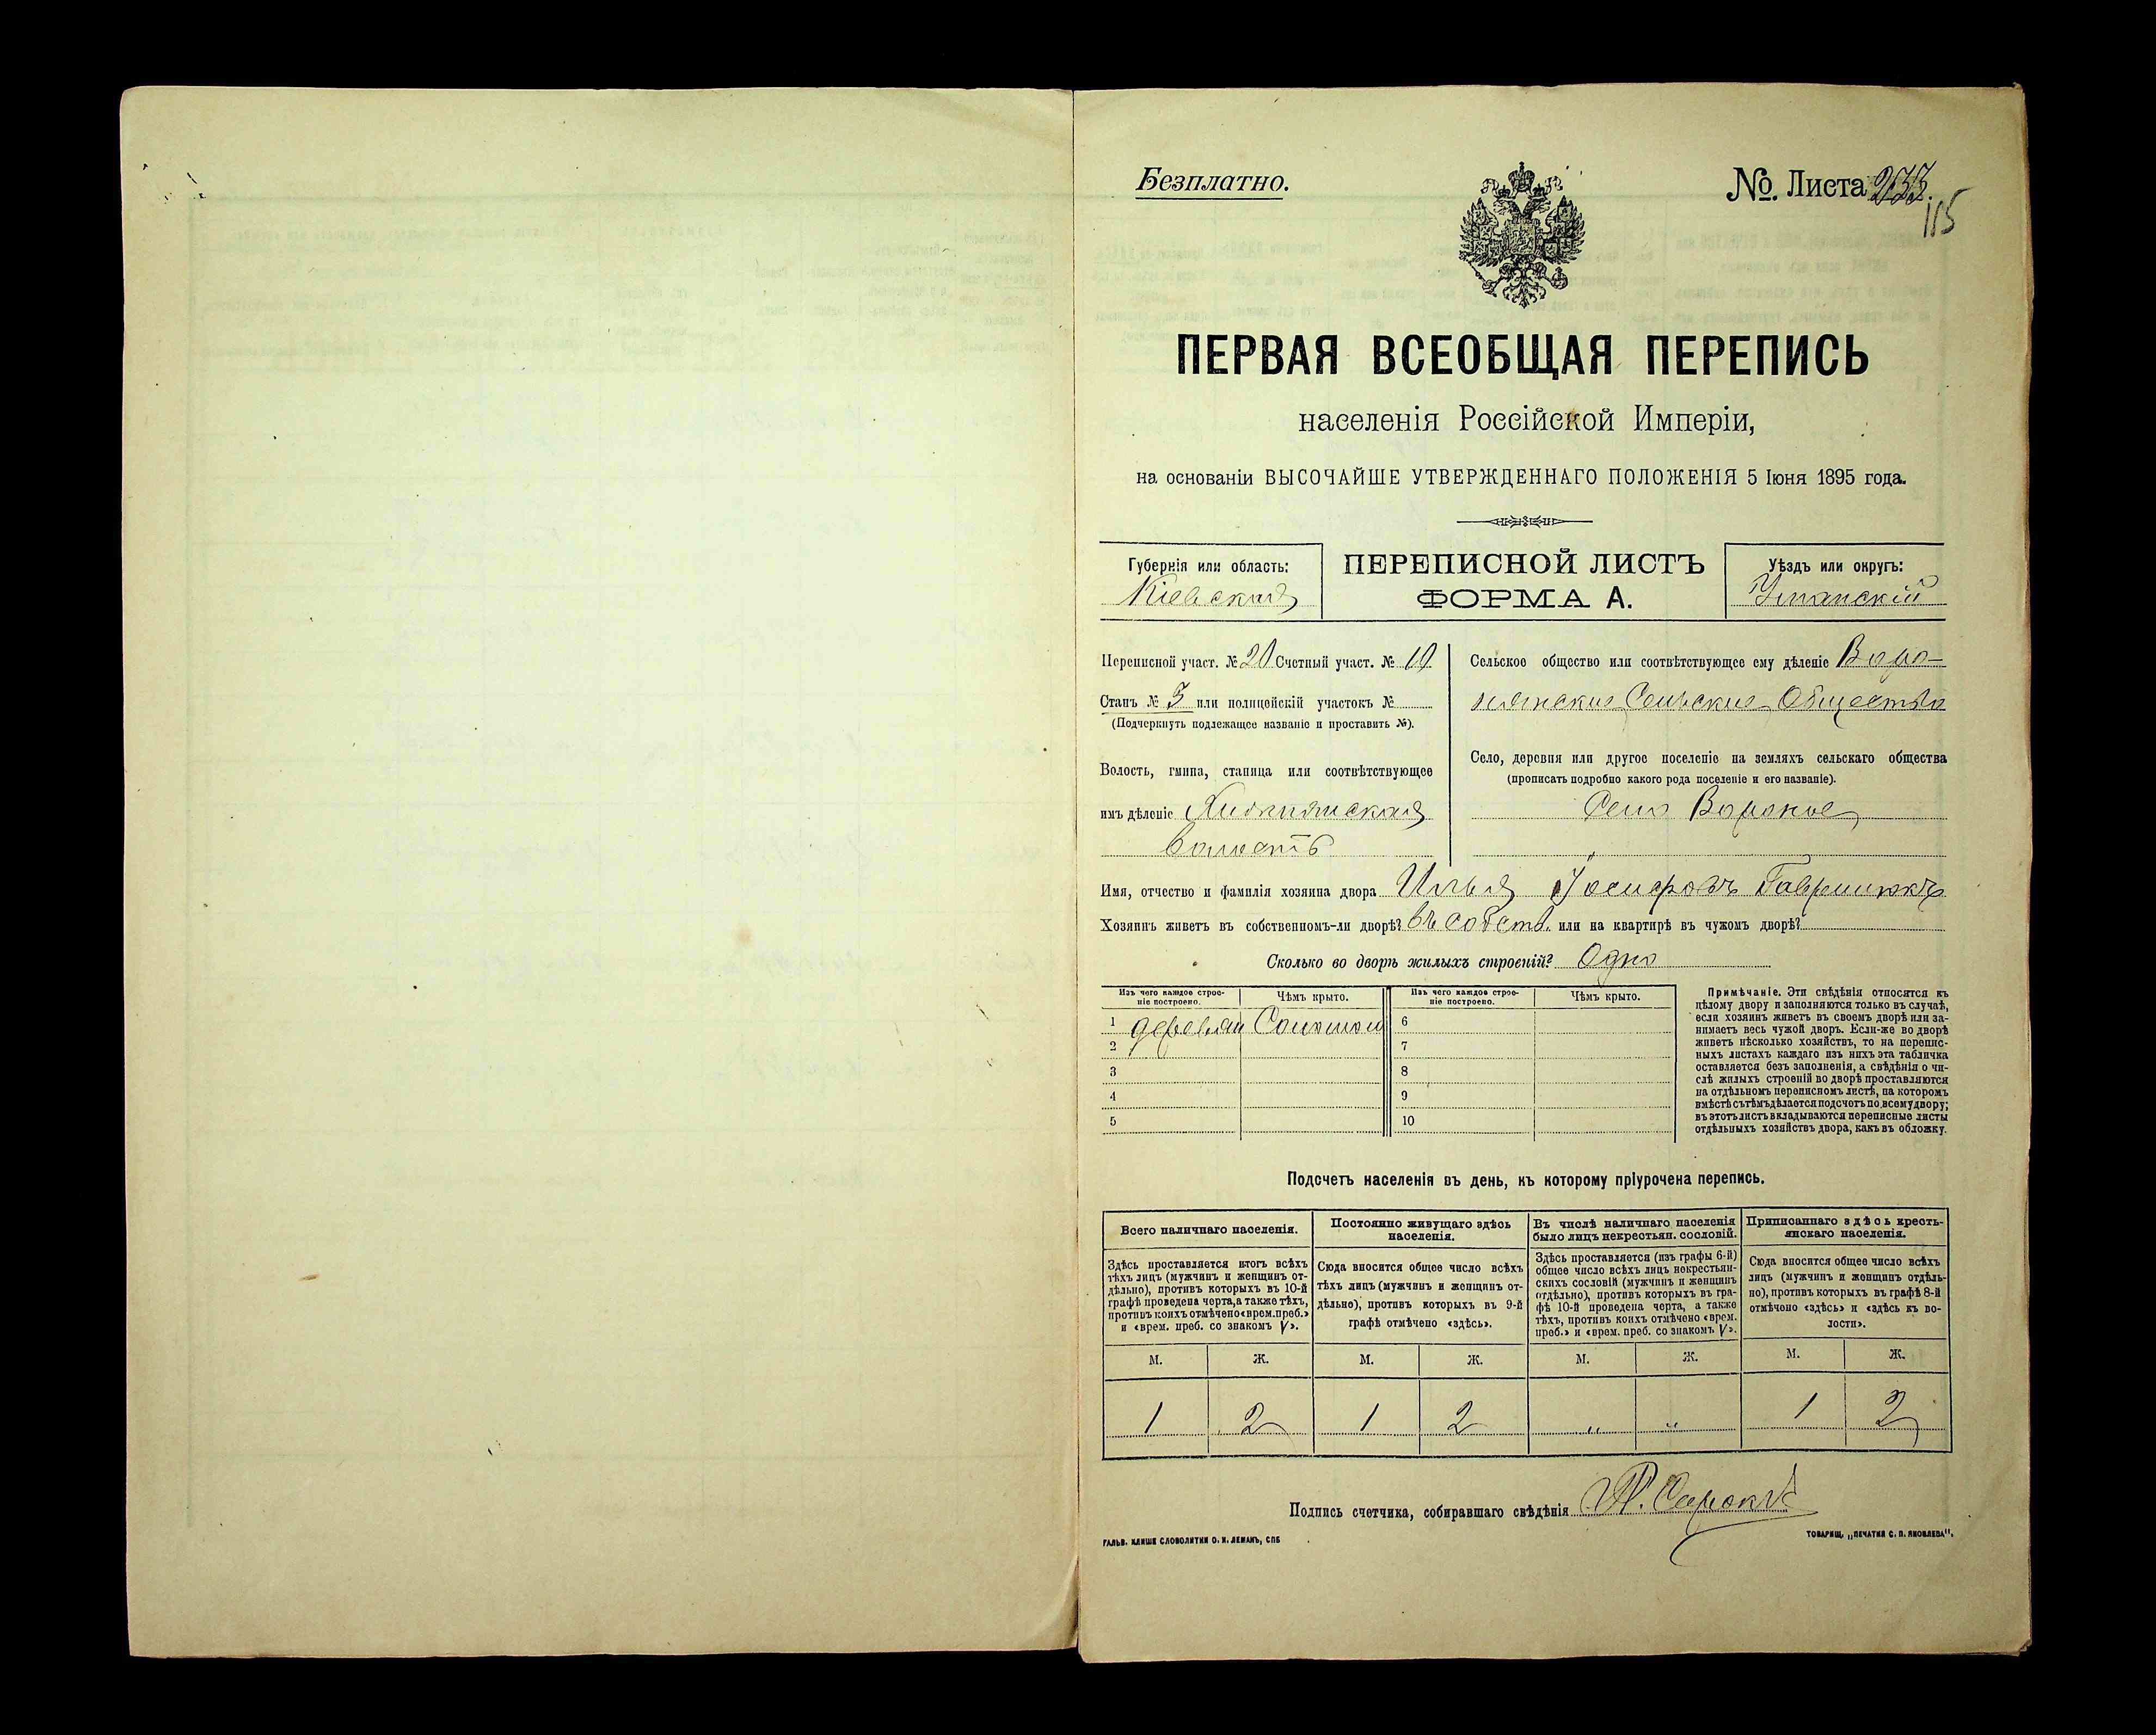 Безплатно.
№. Листа 233.
115
ПЕРВАЯ ВСЕОБЩАЯ ПЕРЕПИСЬ
населенія Россійской Имперіи,
на основаніи ВЫСОЧАЙШЕ УТВЕРЖДЕННАГО ПОЛОЖЕНІЯ 5 Іюня 1895 года.
Губернія или область:
Кіевская
ПЕРЕПИСНОЙ ЛИСТЪ
ФОРМА А.
Уѣздъ или округъ:
Уманскій
Переписной участ. № 20 Счетный участ. № 19
Станъ № 3 или полицейскій участокъ №
(Подчеркнуть подлежащее названіе и проставить №).
Волость, гмина, станица или соотвѣтствующее
имъ дѣленіе
волость
Сельское общество или соотвѣтствующее ему дѣленіе Воро-
нянское Сельское Общество
Село, деревня или другое поселеніе на земляхъ сельскаго общества
(прописать подробно какого рода поселеніе и его названіе).
Село Вороное
Имя, отчество и фамилія хозяина двора Илья Іосифовъ
Хозяинъ живетъ въ собственномъ-ли дворѣ? въ собств. или на квартирѣ въ чужомъ дворѣ?
Сколько во дворѣ жилыхъ строеній? Одно
Изъ чего каждое строе-
ніе построено.
Чѣмъ крыто.
Изъ чего каждое строе-
ніе построено.
Чѣмъ крыто.
1 деревян Соломой 6
2 7
3 8
4 9
5 10
Примѣчаніе. Эти свѣдѣнія относятся къ
цѣлому двору и заполняются только въ случаѣ,
если хозяинъ живетъ въ своемъ дворѣ или за-
нимаетъ весь чужой дворъ. Если-же во дворѣ
живетъ нѣсколько хозяйствъ, то на перепис-
ныхъ листахъ каждаго изъ нихъ эта табличка
оставляется безъ заполненія, а свѣдѣнія о чи-
слѣ жилыхъ строеній во дворѣ проставляются
на отдѣльномъ переписномъ листѣ, на которомъ
вмѣстѣ съ тѣмъ дѣлается подсчетъ по всему двору;
въ этотъ листъ вкладываются переписные листы
отдѣльныхъ хозяйствъ двора, какъ въ обложку.
Подсчетъ населенія въ день, къ которому пріурочена перепись.
Всего наличнаго населенія.
Здѣсь проставляется итогъ всѣхъ
тѣхъ лицъ (мужчинъ и женщинъ от-
дѣльно), противъ которыхъ въ 10-й
графѣ проведена черта, а также тѣхъ,
противъ коихъ отмѣчено «врем. преб.»
и «врем. преб. со знакомъ V».
Постоянно живущаго здѣсь
населенія.
Сюда вносится общее число всѣхъ
тѣхъ лицъ (мужчинъ и женщинъ от-
дѣльно), противъ которыхъ въ 9-й
графѣ отмѣчено «здѣсь».
Въ числѣ наличнаго населенія
было лицъ некрестьян. сословій.
Здѣсь проставляется (изъ графы 6-й)
общее число всѣхъ лицъ некрестьян-
скихъ сословій (мужчинъ и женщинъ
отдѣльно), противъ которыхъ въ гра-
фѣ 10-й проведена черта, а также
тѣхъ, противъ коихъ отмѣчено «врем.
преб.» и «врем. преб. со знакомъ V».
Приписаннаго здѣсь кресть-
янскаго населенія.
Сюда вносится общее число всѣхъ
лицъ (мужчинъ и женщинъ отдѣль-
но), противъ которыхъ въ графѣ 8-й
отмѣчено «здѣсь» и «здѣсь къ во-
лости».
М. Ж. М. Ж. М. Ж. М. Ж.
1 2 1 2 „ „ 1 2
Подпись счетчика, собиравшаго свѣдѣнія
ГАЛЬВ. КЛИШЕ СЛОВОЛИТНИ О. И. ЛЕМАНЪ, СПБ
ТОВАРИЩ. „ПЕЧАТНЯ С. П. ЯКОВЛЕВА“.